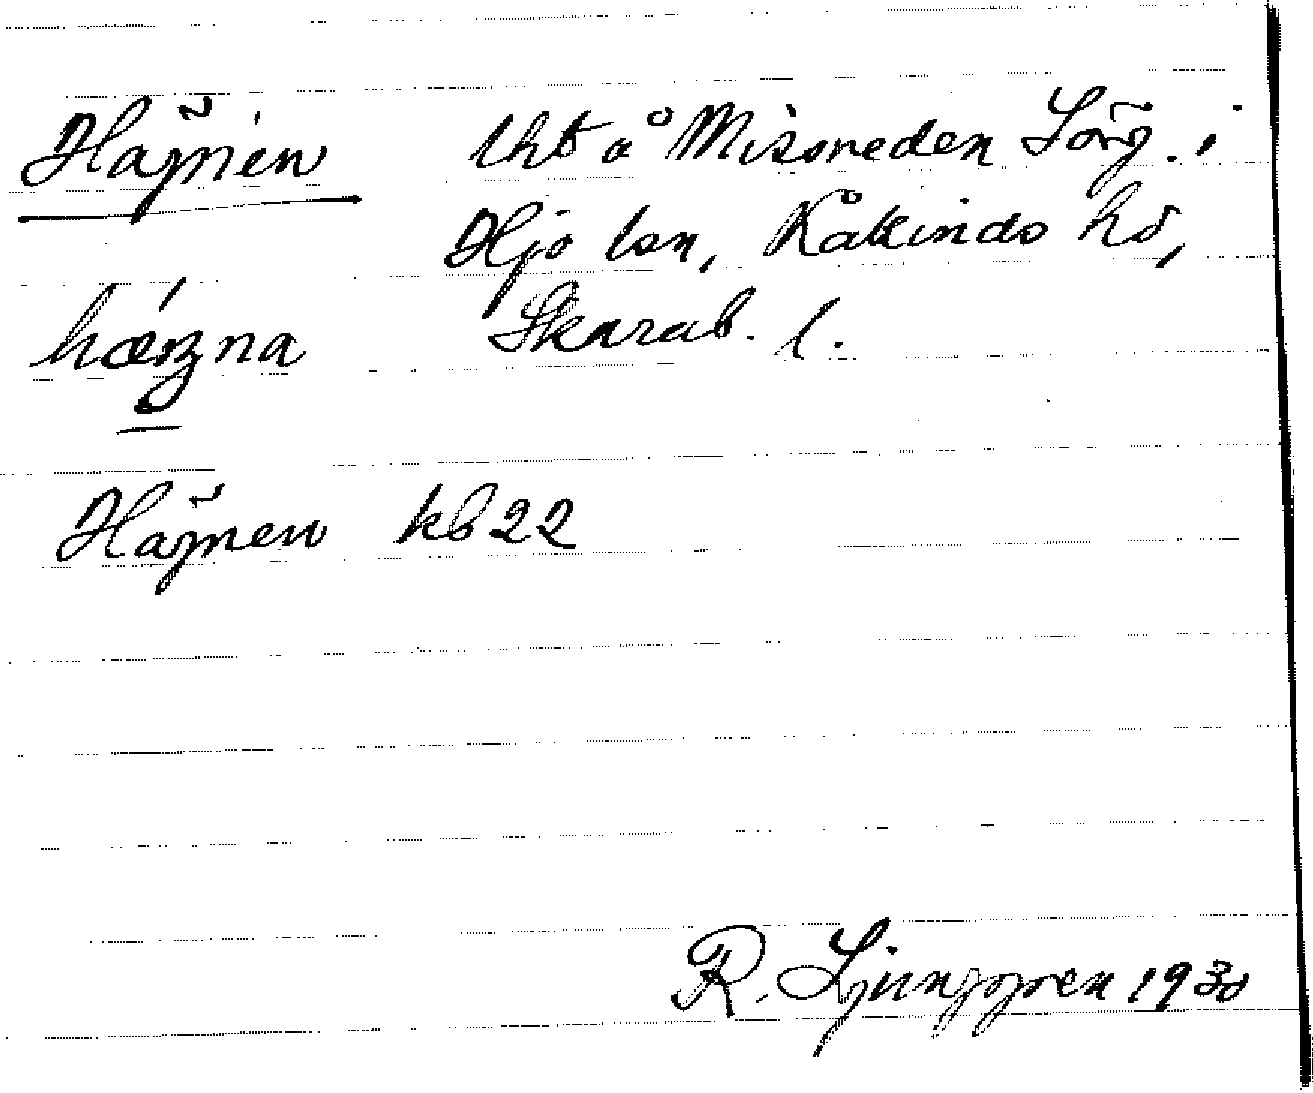 Hagnen lht å Missveden Sörg. i
Hjo lsn, Kåkinds hd,
Skarab. l.
Hagnen kb 22
R. Ljunggren 1930